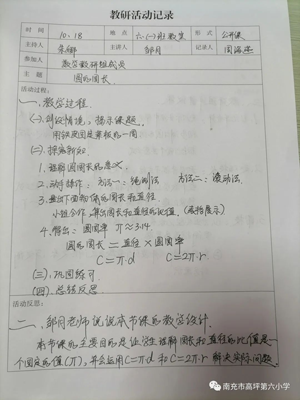 教研活动记录
时间 10.18 地点 六(一)班教室 形式 公开课
主持人 主讲人 邹月 记录人
参加人 数学教研组成员
主题 圆的周长
活动过程:
一、教学过程
(一)、创设情境,揭示课题
用铁皮围定桌板的一周
(二)、探索新知
1. 理解圆周长的意义
2. 动手操作: 方法一:绕绳法 方法二:滚动法
3. 量出下面物体的周长和直径
小组合作,算出周长和直径的比值。(展指展示)
4. 得出:圆周率 π≈3.14
圆的周长=直径×圆周率
C=π·d C=2π·r
(三)、巩固练习
(四)、总结反思
活动反思:
二、邹月老师说说本节课的教学设计.
本节课的主要目的是让学生理解周长和直径的比值是
一个固定的值(π),并会运用C=πd和C=2π·r解决实际问题.
南充市高坪第六小学